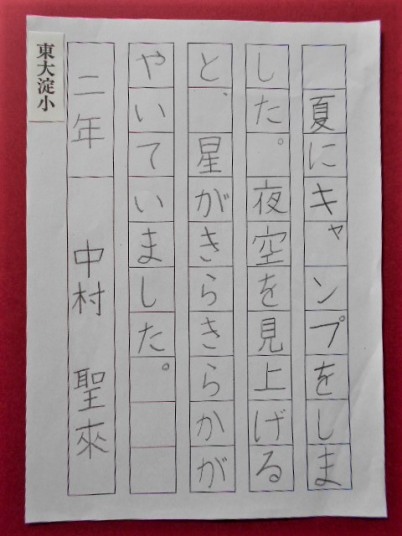 夏にキャンプをしま
した。夜空を見上げる
と、星がきらきらかが
やいていました。
二年 中村 聖來
東大淀小